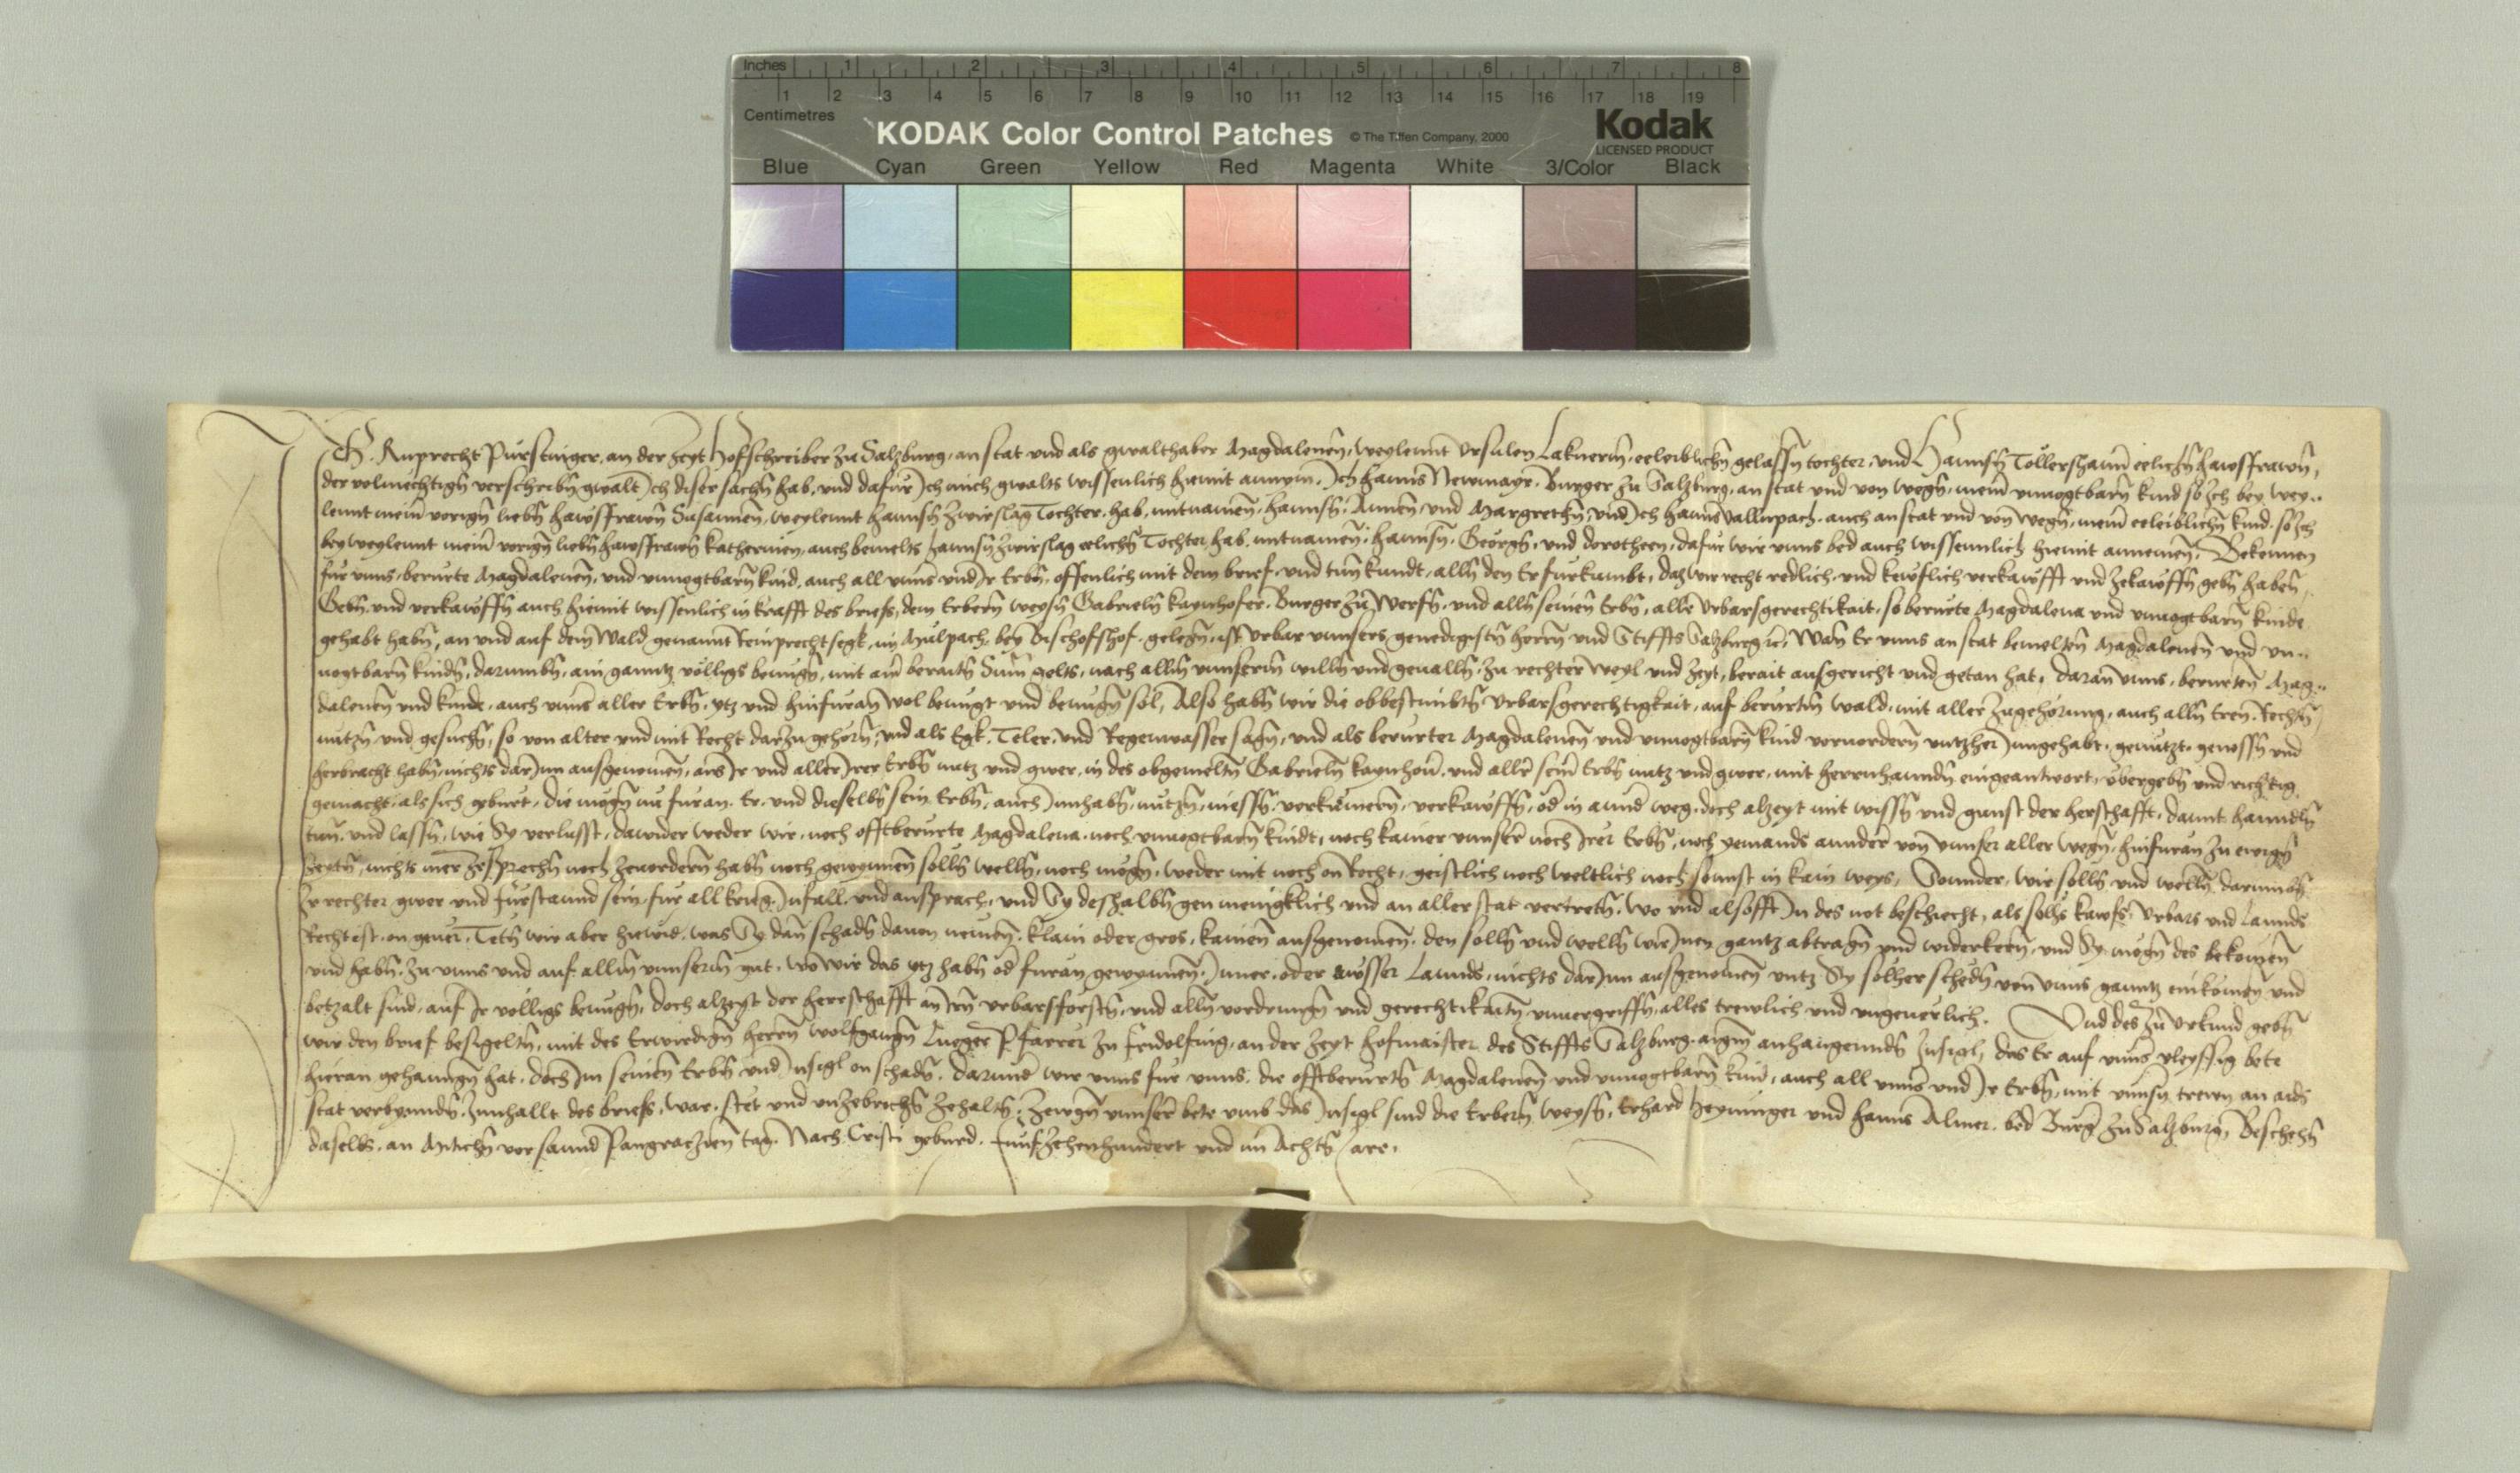 Inches 1 2 3 4 5 6 7 8
1 2 3 4 5 6 7 8 9 10 11 12 13 14 15 16 17 18 19
Centimetres
KODAK Color Control Patches © The Tiffen Company, 2000 Kodak
LICENSED PRODUCT
Blue Cyan Green Yellow Red Magenta White 3/Color Black
Ich Ruprecht Pürstinger, an der zeyt hofschreiber zu Salzburg, an stat und als gwalthaber Magdalenen, weylennt Ursulen Laknerin, eeleiblichn gelassn tochter, und Hannsn Tollershaim eelichn hawsfrawn,
der volmechtign verschribn gwalt Ich diser sachn hab, und dafur Ich mich gwalts wissenlich hiemit annym. Ich Hanns Newmayr, Burger zu Salzburg, an stat und von wegn, mein unvogtbarn kind so Ich bey wey..
lennt mein vorign liebn hawsfrawn Susannen, weylennt Hannsn Zwirslag Tochter, hab, mitnamen, Hannsn, Annen und Margrethn, und Ich Hanns Vallnpach, auch an stat und von wegn, mein eeleiblichn kind, so Ich
bey weylennt mein vorign liebn hawsfrawn Katherinen, auch bemelts Hannsn Zwirslag eelichn Tochter, hab, mitnamen, Hannsn, Georgn, und Dorotheen, dafur wir unns bed auch wissennlich hiemit annemen, Bekennen
fur unns, berurte Magdalenen, und unvogtbarn kind, auch all unns und Ir Erbn, offenlich mit dem brief, und tun kundt, alln den Er furkumbt, daz wir recht redlich, und kewflich verkawfft und zekawffn gebn haben,
Gebn, und verkawffn auch hiemit wissenlich in krafft des briefs, dem Erbern weysn Gabrieln Kaynhofer, Burger zu Werfn, und alln seinen Erbn, alle urbarsgerechtikait, so berurte Magdalena und unvogtbarn kinde
gehabt habn, an und auf dem Wald genannt Reinprechtsegk, im Mulpach, bey Bischofshof, gelegn, ist urbar unnsers genedigistn herrn und Stiffts Salzburg etc. Wan Er unns an stat bemeltn Magdalenen und un..
vogtbarn kindn, darumbn, ain ganntz volligs benugn, mit ain beraitn Sum gelts, nach alln unnserm willn und gevalln, zu rechter weyl und zeyt, berait ausgericht und getan hat, daran unns, berurten Mag..
dalenen und kinde, auch unns aller Erbn, ytz und hinfuran wol benugt und benugn sol, Also habn wir die obbestimbtn urbarsgerechtigkait, auf berurtn wald, mit aller zugehorung, auch alln Eren, Rechtn,
nutzn, und gesuchn, so von alter und mit Recht darzu gehorn, und als Egk, Teler, und Regenwasser sagn, und als berurter Magdalenen und unvogtbarn kind vorvordern untzher Inngehabt, genutzt, genossn und
herbracht habn, nichts darInn ausgenomen, aus Ir und aller Irer Erbn nutz und gwer, in des obgemeltn Gabrieln Kaynhofer, und aller sein Erbn nutz und gwer, mit herrnhanndn eingeantwort, ubergebn und richtig
gemacht, als sich geburt, die mogn nu furan, Er, und dieselbn sein Erbn, auch Innhabn, nutzn, niessn, verkumern, verkawffn, od in annd weg, doch alzeyt mit wissn und gunst der herschafft, damit hanndln
tun, und lassn, wie Sy verlusst, dawider weder wir, noch offtberurte Magdalena, noch unvogtbarn kindt, noch kainer unnser noch Irer Erbn, noch yemands annder von unnser aller wegn, hinfuran zu ewign
zeytn, nichts mer zesprechn noch zevordern habn noch gewynnen solln welln, noch mogn, weder mit noch on Recht, geistlich noch weltlich noch sonnst in kain weys, Sonnder, wir solln und welln darumbn
Ir rechter gwer und furstannd sein, fur all krieg, Infall, und ansprach, und Sy deshalbn gen menigklich und an aller stat vertretn, wo und alsofft In des not beschiecht, als solhs kawfs, urbars und Lannds
Recht ist, on gever, Tetn wir aber hiewid, was Sy dan schadn davon nemen, klain oder gros, kainen ausgenomen, den solln und welln wir Inen gantz abtragn und widerkern, und Sy, mogn des bekomen
und habn, zu unns und auf alln unnserm gut, wo wir das ytz habn od furan gewynnen, Inner, oder ausser Lannds, nichts darInn ausgenomen untz Sy solher schedn von unns ganntz einkomen und
betzalt sind, auf Ir volligs benugn, doch alzeyt der herrschafft an Irn urbarsforstn, und alln vordrungn und gerechtikaitn unvergriffn, alles trewlich und ungeverlich. Und des zu urkund gebn
wir den brief besigeltn, mit des Erwirdign herrn Wolfgangn Lueger Pfarrer zu Fridolfing, an der zeyt hofmaister des Stiffts Salzburg, aigen anhangenndn Insigl, das Er auf unns vleyssig bete
hieran gehanngn hat, doch Im seinen Erbn und Insigl on schadn, darunder wir unns fur unns, die offtberurtn Magdalenen und unvogtbarn kind, auch all unns und Ir Erbn, mit unnsn trewn an aids
stat verbynndn, Innhallt des briefs, war, stet und unzebrochn zehaltn, Zewgn unnser bete umb das Insigl sind die Erbern weysn, Erhard Heyninger und Hanns Almer, bed Burg zu Salzburg, Beschehn
daselbs, an Mitichn vor sannd Pangraczien tag, Nach Cristi geburd, funfzehenhundert und im Achtn Jare.